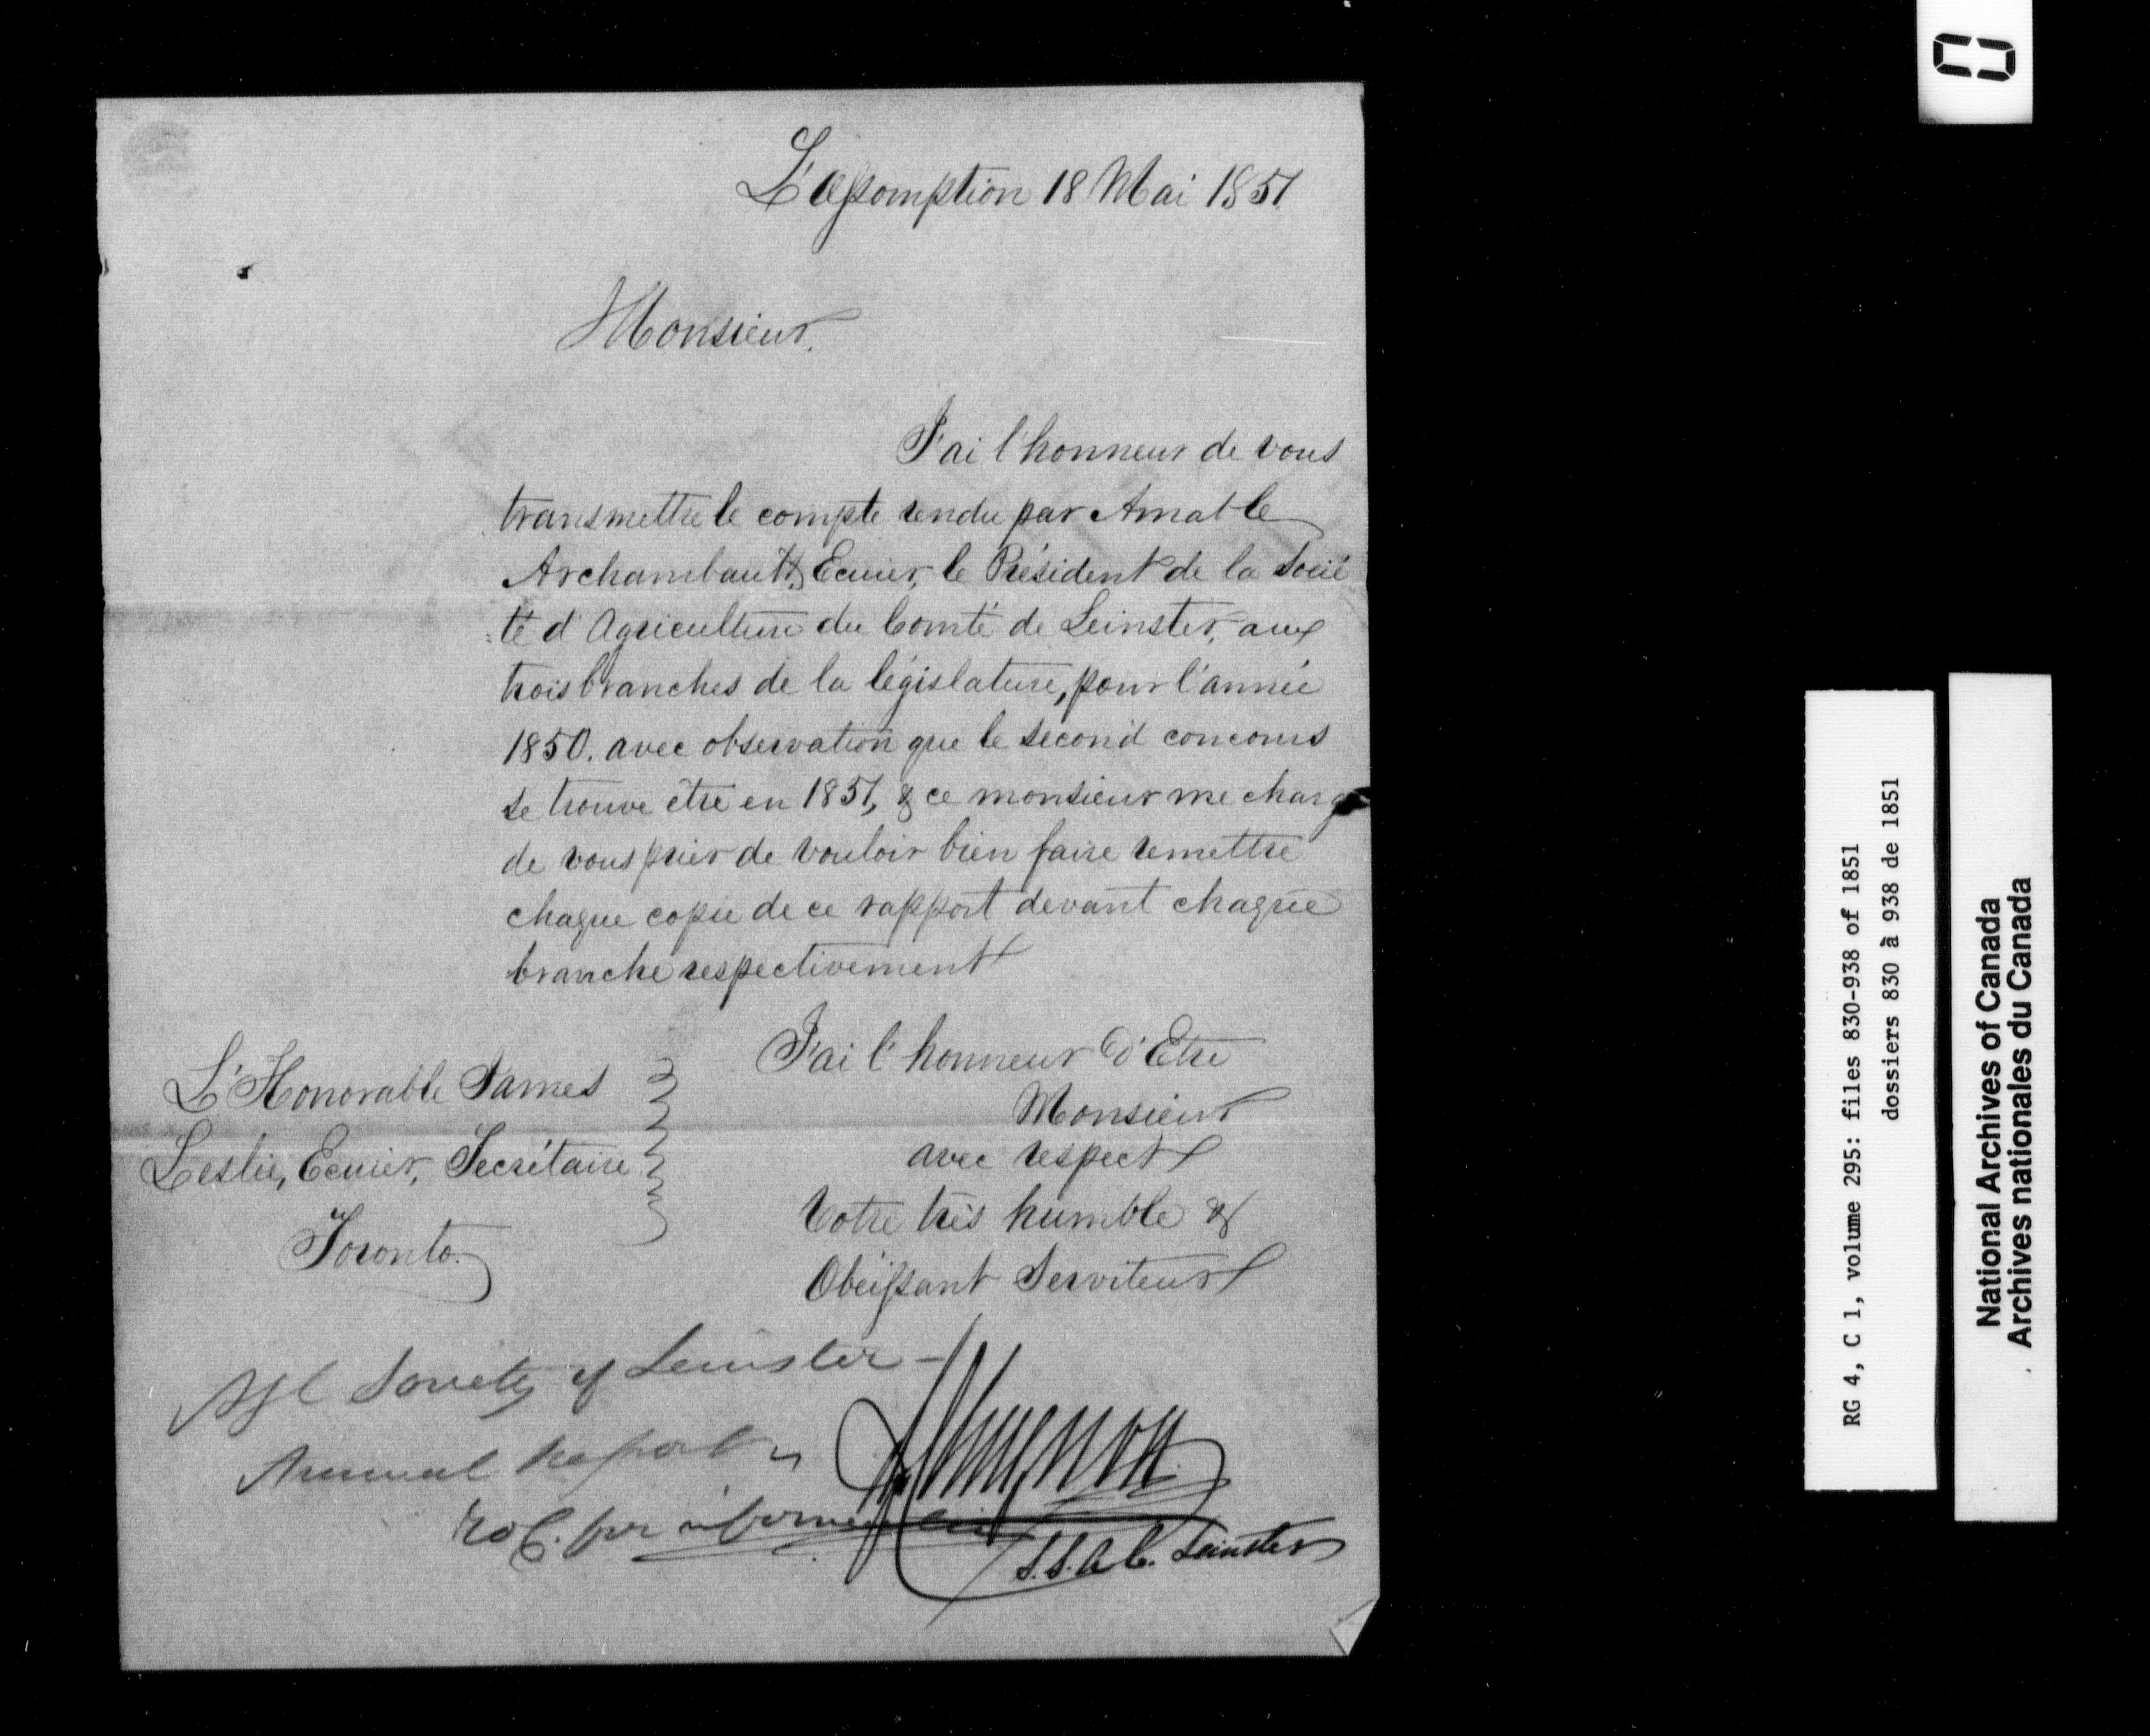 L'assomption 18 Mai 1851
Monsieur.
J'ai l'honneur de vous
transmettre le compte rendu par Amable
Archambault, Ecuier, le Président de la Socié
té d'Agriculture du Comté de Leinster, aux
trois branches de la législature, pour l'année
1850. avec observation que le second concours
se trouve être en 1851, & ce monsieur me charge
de vous prier de vouloir bien faire remettre
chaque copie de ce rapport devant chaque
branche respectivement
J'ai l'honneur d'Etre
Monsieur
avec respect
Votre très humble &
Obeissant Serviteur
L'Honorable James
Leslie, Ecuier, Secrétaire
Toronto.
Agl Society of Leinster -
Annual Report
for information
S.S.A.C. Leinster
RG 4, C 1, volume 295: files 830-938 of 1851
dossiers 830 à 938 de 1851
National Archives of Canada
Archives nationales du Canada